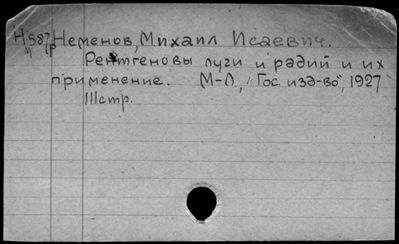 Н587 Неменов, Михаил Исаевич.
Рентгеновы луги и радий и их
применение. М-Л, "Гос изд-во", 1927
111стр.